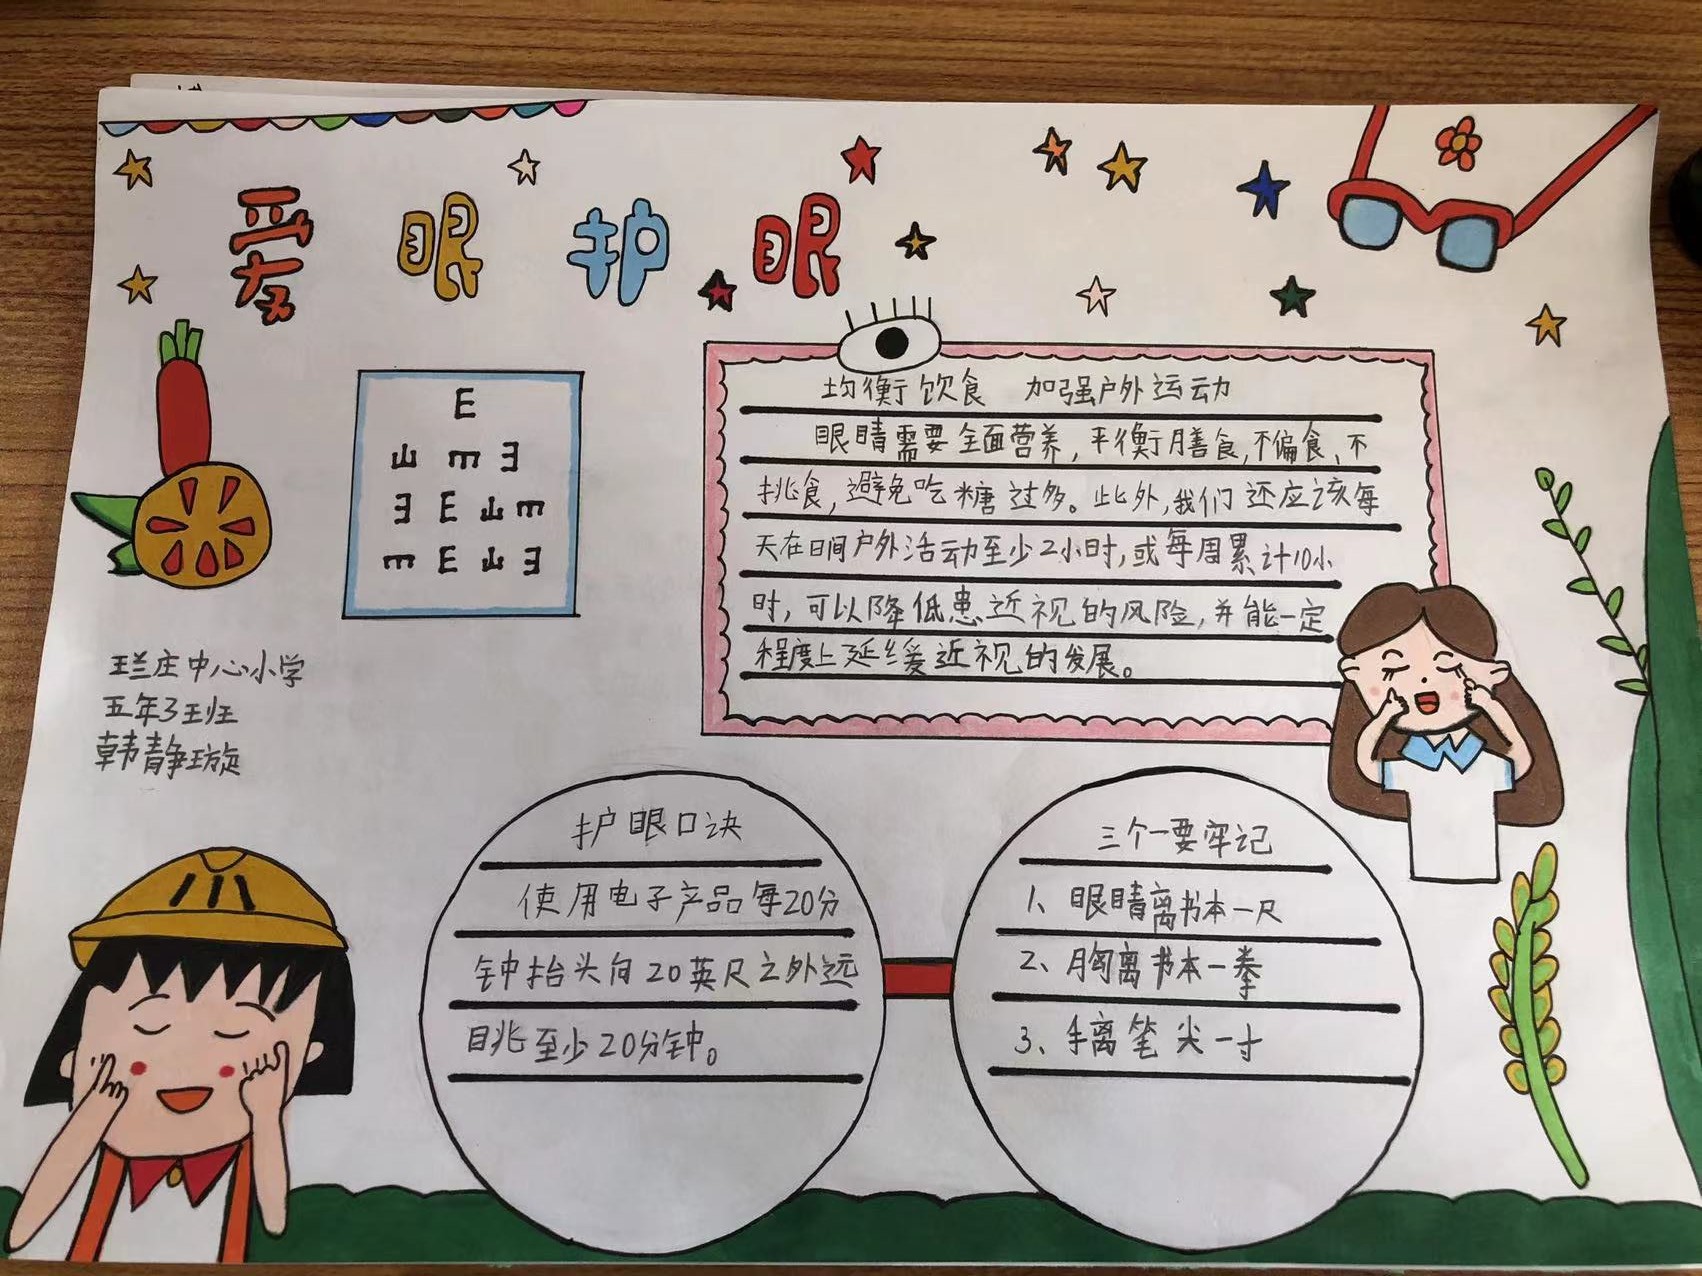 爱眼护眼
E
E E E
E E E E
E E E E
均衡饮食 加强户外运动
眼睛需要全面营养,平衡膳食,不偏食、不
挑食,避免吃糖过多。此外,我们还应该每
天在日间户外活动至少2小时,或每周累计10小
时,可以降低患近视的风险,并能一定
程度上延缓近视的发展。
王兰庄中心小学
五年3班
韩静璇
护眼口诀
使用电子产品每20分
钟抬头向20英尺之外远
眺至少20分钟。
三个一要牢记
1、眼睛离书本一尺
2、胸离书本一拳
3、手离笔尖一寸